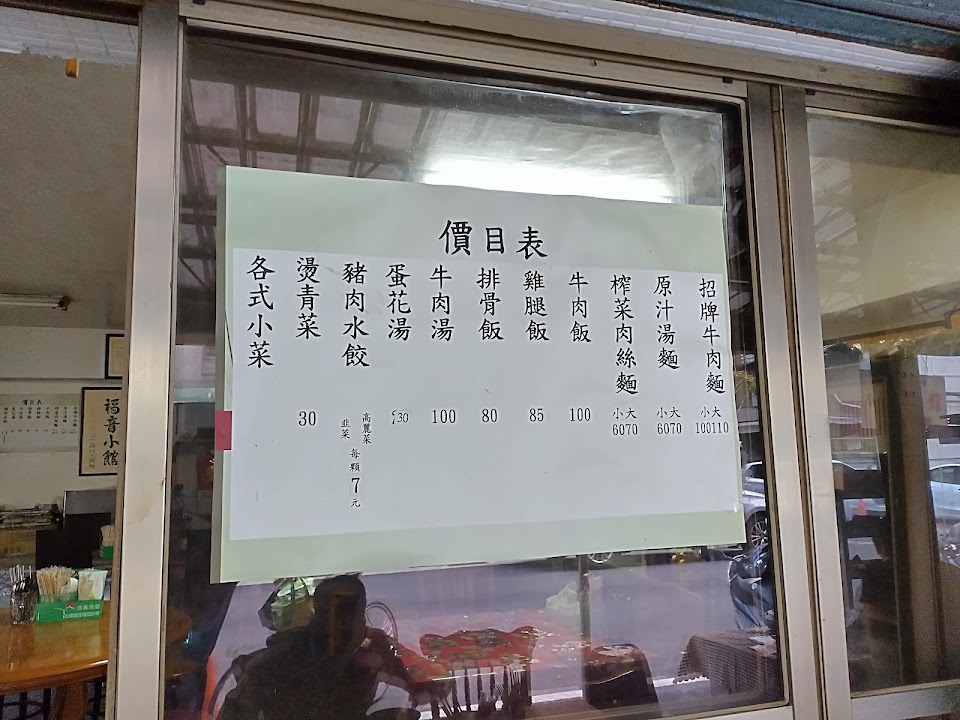 價目表
招牌牛肉麵
小大
100110
原汁湯麵
小大
6070
榨菜肉絲麵
小大
6070
牛肉飯
100
雞腿飯
85
排骨飯
80
牛肉湯
100
蛋花湯
30
豬肉水餃
高麗菜
韭菜
每顆7元
燙青菜
30
各式小菜
價目表
福音小館